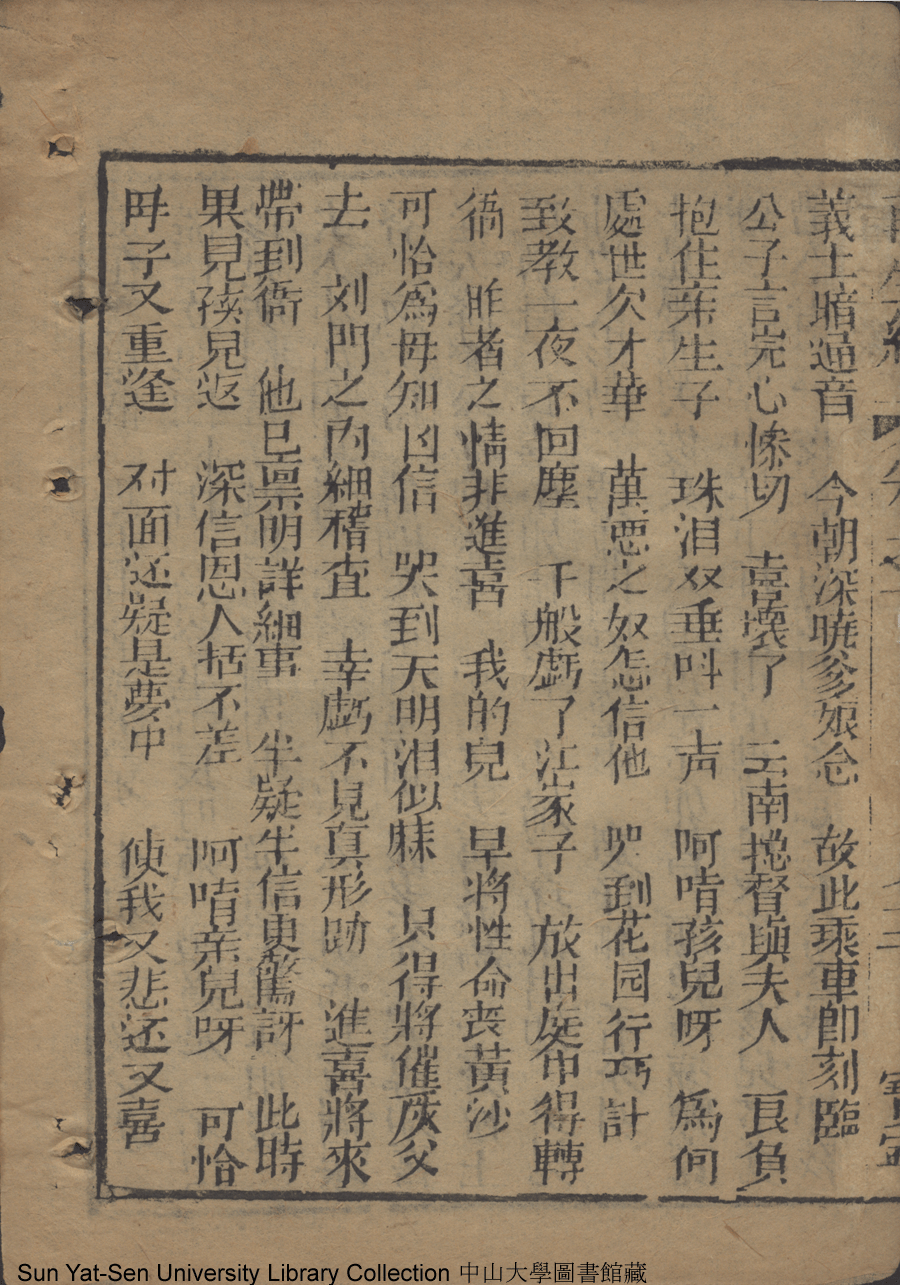 義士暗通音 今朝深曉爹娘念 故此乘車即刻臨
公子言完心慘切 喜壞了 云南揔督與夫人 良負
抱住亲生子 珠泪双垂叫一声 呵唷孩兒呀 爲何
處世欠才華 萬惡之奴怎信他 哄到花园行巧計
致教一夜不回塵 千般虧了江家子 放出庭中得轉
衙 昨者之情非進喜 我的兒 早將性命丧黃沙
可怡爲毋知凶信 哭到天明泪似麻 只得將催庚父
去 刘門之內細稽查 幸虧不見真形跡 進喜將來
帶到衙 他已禀明詳細事 半疑半信更驚訝 此時
果見孩兒返 深信恩人括不差 呵唷亲兒呀 可恰
毋子又重逢 对面还疑是夢中 使我又悲还又喜
Sun Yat-Sen University Library Collection 中山大學圖書館藏